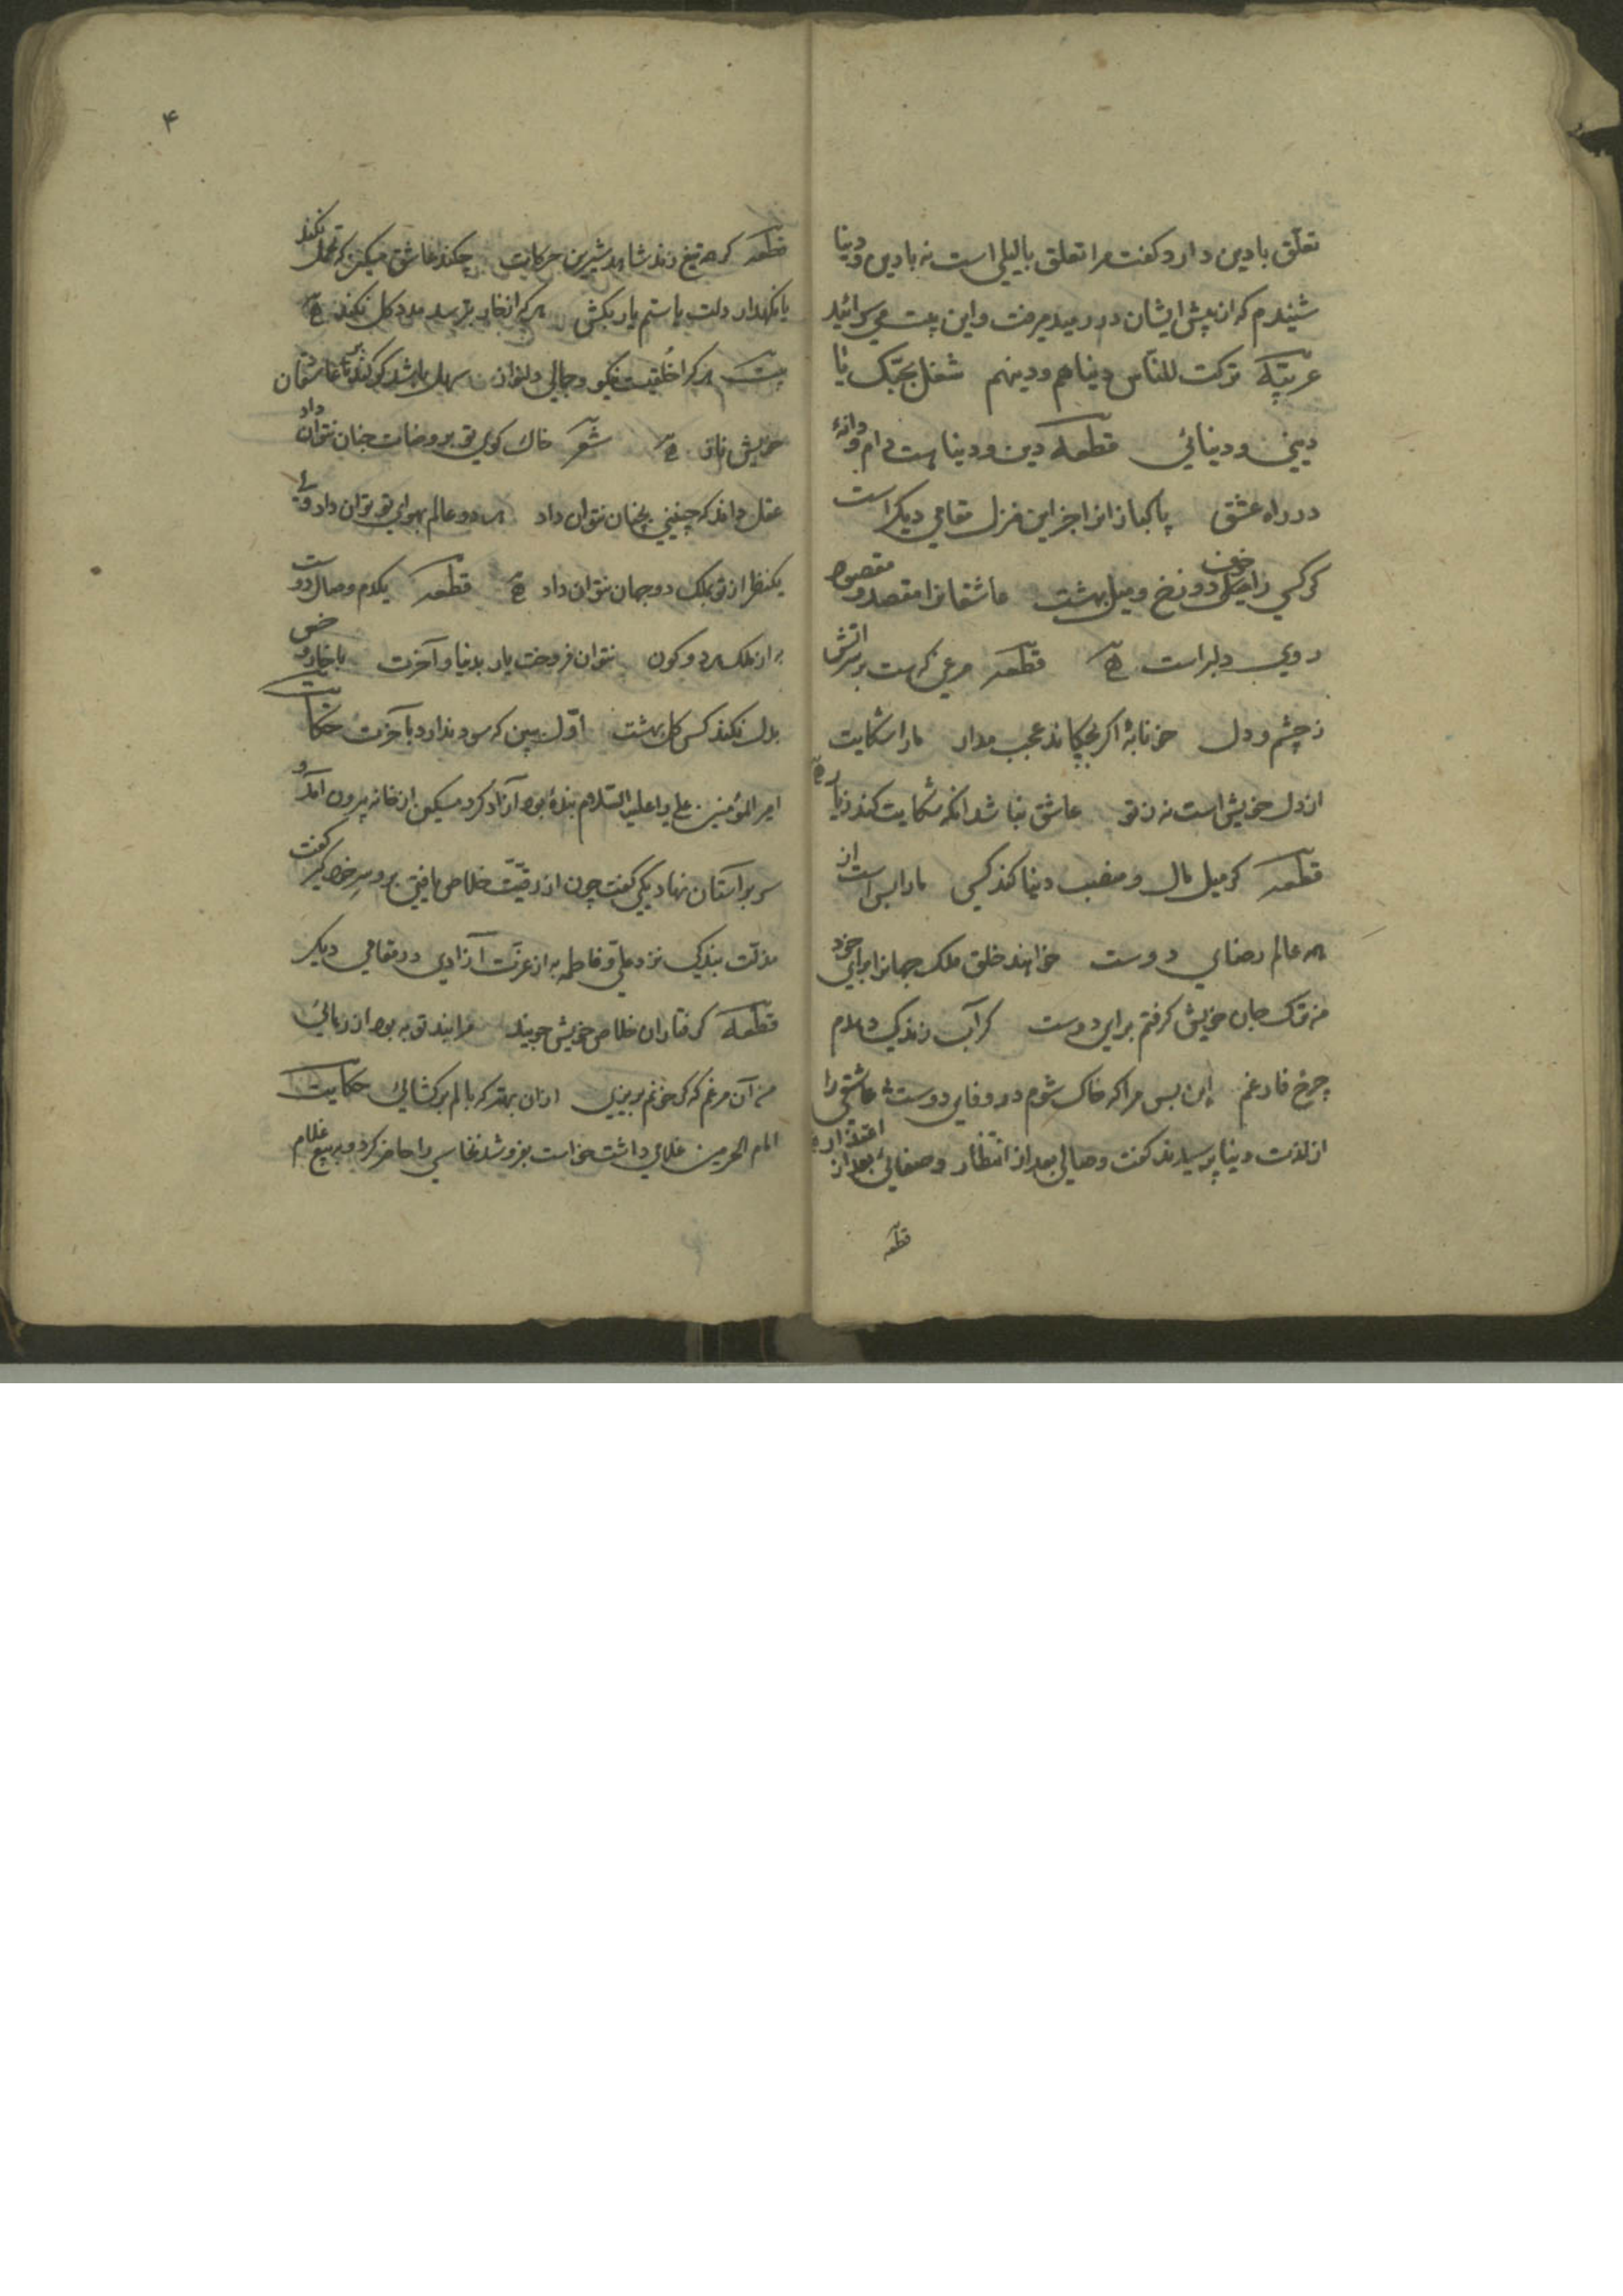 تعلّق بادین دارد کفت مرا تعلق بالیلی است نه بادین و دنیا
شنیدم که از پیش ایشان در رمید میرفت و این بیت می سرائید
عربیّه ترکت للنّاس دنیاهم ودینهم شغل بحبّک یا
دینی ودنیائی قطعه دین و دنیا هست دام و دانهٔ
در راه عشق پاکبازانرا جز این منزل مقامی دیکر است
کر کسی را خوف دوزخ و میل بهشت عاشقانرا مقصد و مقصود
روی دلبر است قطعه مرغی که هست بر سر آتش
ز چشم و دل خونابهٔ اکر بچکاند عجب مدار مارا شکایت
از دل خویش است نه ز تو عاشق نباشد انکه شکایت کند ز یار
قطعه کر میل مال و منصب دنیا کند کسی مارا بس است از
همه عالم رضای دوست خواهند خلق ملک جهانرا برای خود
من ترک جان خویش کرفتم برای دوست کر آب زندکی ندهدم
چرخ فارغم این بس مرا که خاک شوم در وفای دوست عاشقی را
از لذت دنیا پرسیدند کفت وصالی بعد از انتظار و صفائی بعد از اعتذار
قطعه
۴
قطعه کر همه تیغ زند شاهد شیرین حرکات چکند عاشق مسکین که تحمل نکند
یا نکهدار دلت یا ستم یار بکش هر که از خار بترسد مدد کل نکند
بیت هر کرا خُلقیست نیکو و جمالی دلنواز سهل باشد کر کند با عاشقان
خویش ناز شعر خاک کوی تو بروضات جنان نتوان داد
عقل داند که چنینی بچنان نتوان داد هر دو عالم بهوای تو توان داد ولی
یکنظر از تو بملک دو جهان نتوان داد قطعه یکدم وصال دوست
به از ملک هر دو کون نتوان فروخت یار بدنیا و آخرت با خار و خس
بدل نکند کس کل بهشت اوّل ببین که سود ندارد بآخرت حکایت
امیر المؤمنین علی را علیه السّلام بندهٔ بود آزاد کرد مسکین از خانه بیرون آمد و
سر بر آستان نهاد یکی کفت چون از رقیّت خلاص یافتی برو سر خود کیر کفت
مذلّت بندکی نزد علی و فاطمه به از عزّت آزادی در مقامی دیکر
قطعه کرفتاران خلاص خویش جویند مرا بند تو به بود از رهائی
من آن مرغم که کر خونم بریزی از ان بهتر که بالم بر کشائی حکایت
امام الحرمین غلامی داشت خواست بفروشد نخاسی را حاضر کرد و ببیع غلام